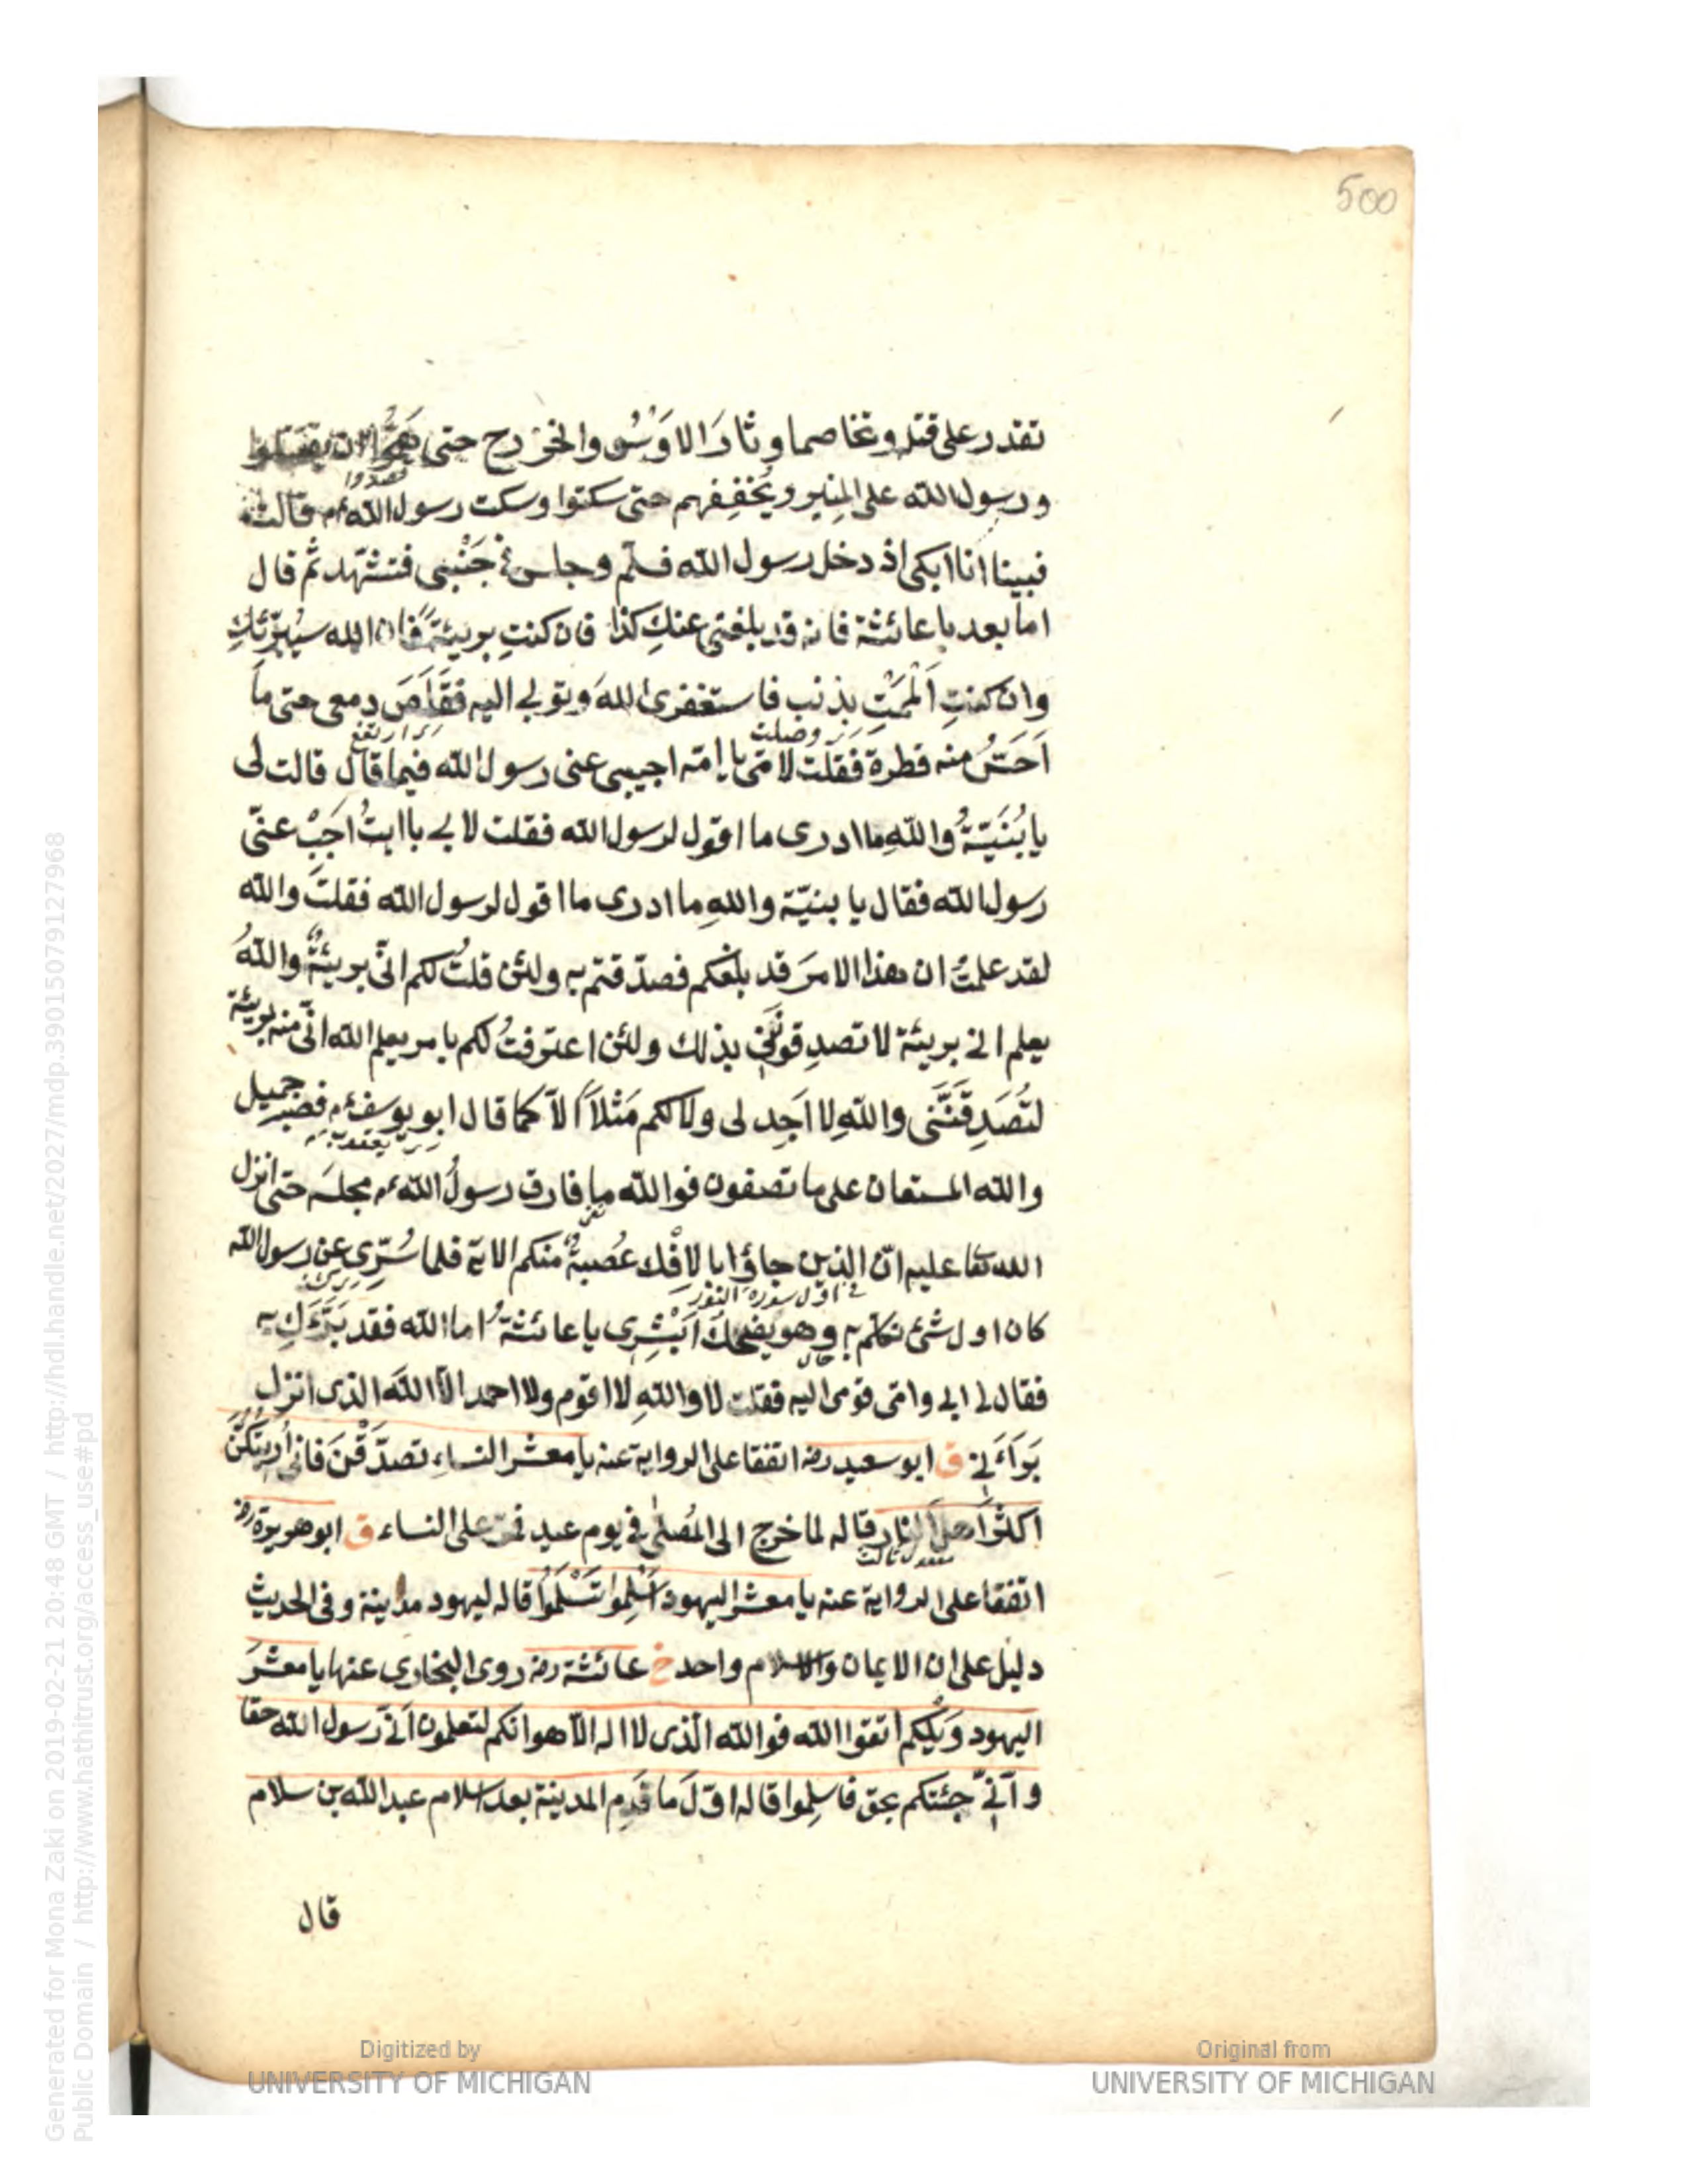 500
تقدر على قتله وتخاصما وثارَ الاوْسُ والخزرج حتى هَمُّوا ان يقتتلوا
قصدوا
ورسول الله على المنبر ويُخَفِّفهم حتى سكتوا وسكت رسول الله عم قالت
فبينا انا ابكى اذ دخل رسول الله فسلّم وجلس فى جَنْبى فتشهّد ثم قال
اما بعد يا عائشة فانه قد بلغنى عنكِ كذا فان كنتِ بريئة فان الله سيُبَرِّئكِ
وان كنتِ اَلْمَمْتِ بذنب فاستغفرى اللهَ وتوبى اليه فقَلَصَ دمعى حتى ما
اى ارتفع
وصلت
اَحَسُّ منه قطرة فقلت لامّى يا امّه اجيبى عنى رسول الله فيما قال قالت لى
يا بُنَيَّةُ واللهِ ما ادرى ما اقول لرسول الله فقلت لابى يا ابتُ اَجِبْ عنّى
رسول الله فقال يا بنيّة واللهِ ما ادرى ما اقول لرسول الله فقلت والله
لقد علمتُ ان هذا الامرَ قد بلغكم فصدّقتم به ولئن قلتُ لكم انّى بريئةٌ واللهُ
يعلم انى بريئة لا تصدِقونَنى بذلك ولئن اعترفتُ لكم بامر يعلم الله انّى منه بريئة
لتُصَدِقُنَّنى واللهِ لا اَجِد لى ولا لكم مَثْلاً الاّ كما قال ابو يوسف عم فصبر جميل
يعقوب
والله المستعان على ما تصفون فوالله ما فارق رسولُ الله عم مجلسه حتى انزل
الله تعا عليه انّ الذين جاؤا بالافْك عُصبةٌ منكم الاية فلما سُرِّى عن رسول الله
فى اول سورة النور
كان اول شئ تكلّم به وهو يضحك اَبْشِرى يا عائشةُ اما الله فقد بَرَّءَكِ به
حال
فقال لى ابى وامّى قومى اليه فقلت لا واللهِ لا اقوم ولا احمد الاّ اللهَ الذى انزل
بَرَاءَتى ق ابو سعيد رضه اتفقا على الرواية عنه يا معشر النساء تصدَّقْنَ فانى اُريتكنَّ
اكثرَ اهل النار قاله لما خرج الى المُصلّى فى يوم عيد فمرّ على النساء ق ابو هريرة رضه
مفعول ثالث
اتفقا على الرواية عنه يا معشر اليهود اَسْلِمُوا تَسْلَمُوا قاله ليهود مدينة وفى الحديث
دليل على ان الايمان والاسلام واحد خ عائشة رضه روى البخارى عنها يا معشرَ
اليهود وَيْلَكم اتقوا الله فوالله الّذى لا اله الاّ هو انكم لتعلمون اَنّى رسول الله حقا
واَنّى جئتكم بحق فاسلِموا قاله اوّلَ ما قَدِم المدينة بعد اسلام عبد الله بن سلام
قال
Digitized by
UNIVERSITY OF MICHIGAN
Original from
UNIVERSITY OF MICHIGAN
Generated for Mona Zaki on 2019-02-21 20:48 GMT / http://hdl.handle.net/2027/mdp.39015079127968
Public Domain / http://www.hathitrust.org/access_use#pd